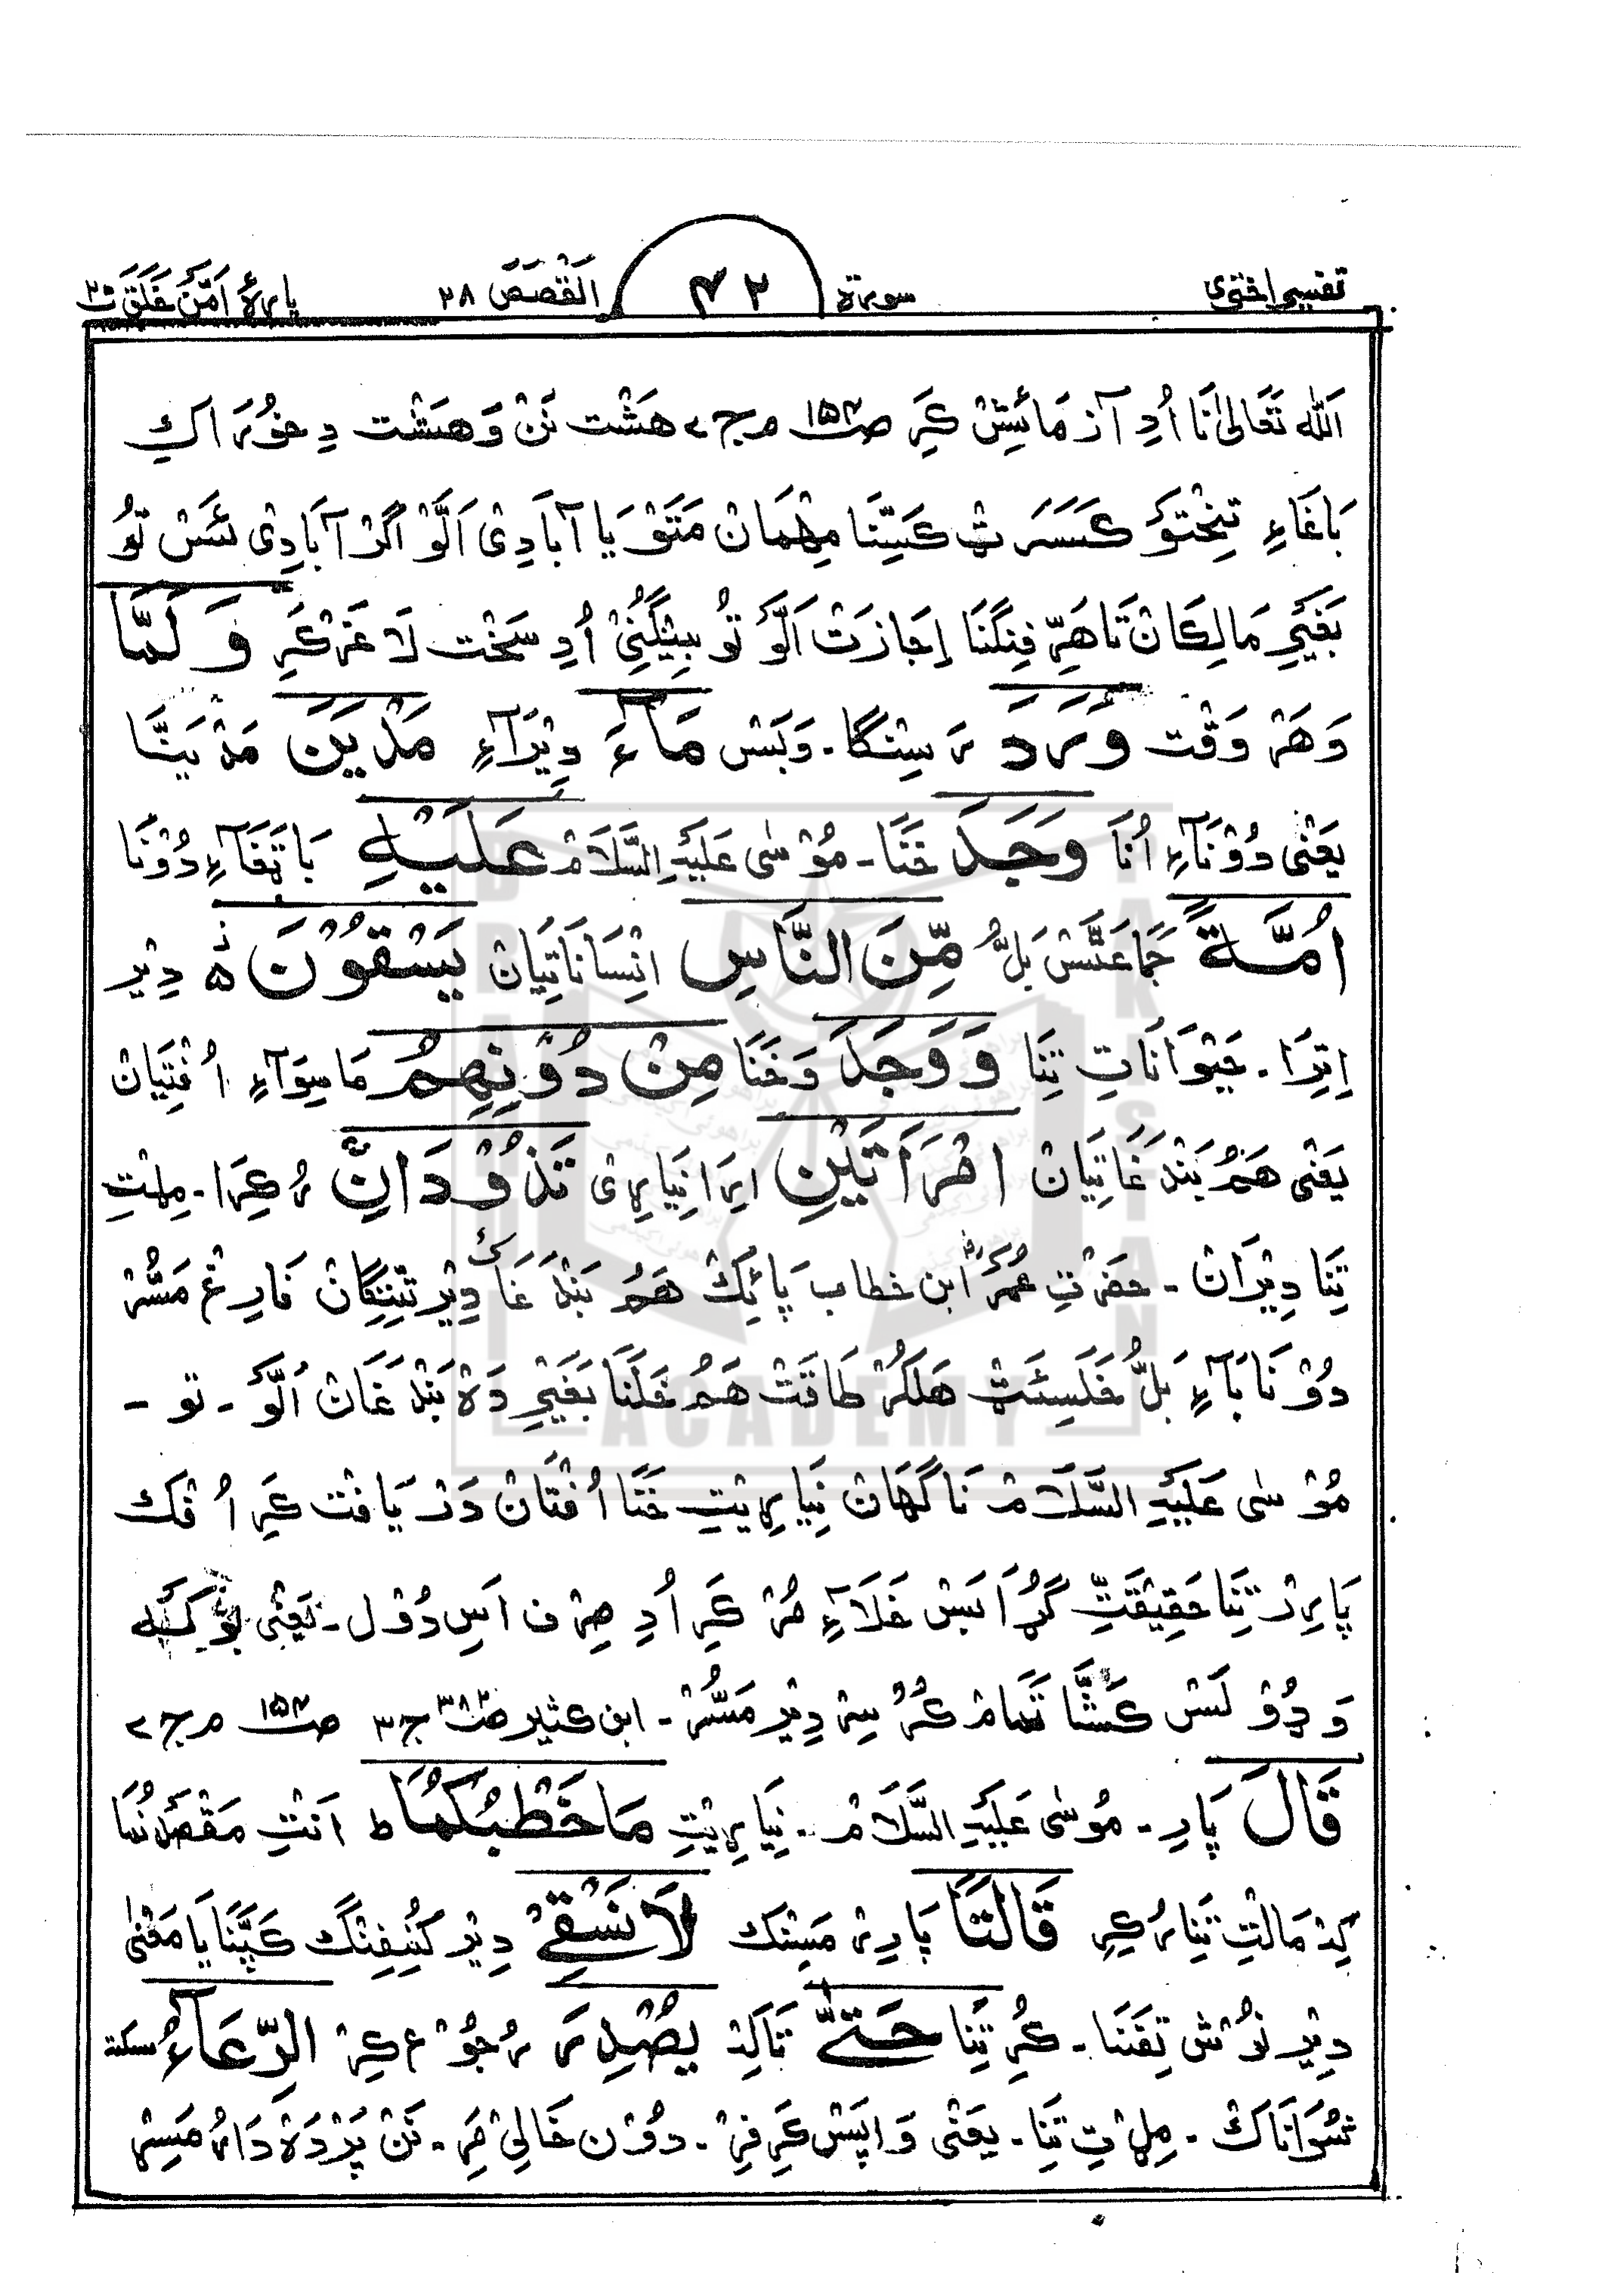 تفسیر اختری سورة ۴۲ القَصَصَ ۲۸ پارۂ اَمَّنْ خَلَقَ ۲۰
اَللّٰه تَعَالیٰ نَا اُدِ آزمَائِشْ کَرِ صـ۱۵۳ م ج ۷ هَشْت نَنْ وَهَشْت دِ خوُرَاکِ
بَاغَاءِ تِخِتَوَ کَسَرَ ٹ کَسِّنَا مِهْمَانْ مَتَوْ یَا آبَادِیْ اَلَّوْ اَگَرْ آبَادِیْ ئَسْ تَوْ
بَغَیْرِ مَالِکَانْ تَا هَرِّ فِنِگْنَا اِجَازَتْ اَلَّوَ تَوْ بِیْنَگُنِیْ اُدِ سَخْت لَا غَرْ کَرِ وَ لَمَّا
وَهَرْ وَقْت وَرَدَ رَسِنْگا۔ وَبَسْ مَآءَ دِیْرَآءِ مَدْیَنَ مَدْیَنَّا
یَعْنٰی دُوْنَآءِ اُنَا وَجَدَ خَنَا۔ مُوْسٰی عَلَیْہِ السَّلَامْ عَلَیْهِ بَا تَغَآءِ دُوْنَا
اُمَّةً جَمَاعَتَّسْ بَلُّ مِّنَ النَّاسِ اِنْسَانَاتِیَانْ یَسْقُوْنَ ۵ دِیْر
اِتِرَا۔ حَیْوَانَاتِ تِنَا وَوَجَدَ وَخَنَا مِنْ دُوْنِهِمُ مَاسِوَآءِ اُفْتِیَانْ
یَعْنٰی هَمُ بَنْدَغَاتِیَانْ امْرَاَتَیْنِ اِرَا نِیَارِی تَذُوْدَانِ رُکِرَا۔ مِلْتِ
تِنَا دِیْرَانْ۔ حضرتِ عُمَرؓ ابن خطاب پَائِکْ هَمُ بَنْدَغَاکْ دِیْر تِنِنْگَانْ فَارِغْ مَسُّرْ
دُوْنَا بَآءِ بَلُّ خَلَسِئَٹ هَلَکُرْ طَاقَتْ هَمُ خَلْنَا بَغَیْرِ دَہْ بَنْدَغَانْ اَلَّوَ۔ تو۔
مُوْسٰی عَلَیْہِ السَّلَامْ نَاگَهَانْ نِیَارِیْتِ خَنَا اُفْتَانْ دَرْیَافْت کَرِ اُفْک
پَارِرْ تِنَا حَقِیْقَتِّ گُڑَا بَسْ خَلَآءِ مُرْ کَرِ اُدِ صِرْف اَسِ دُوْل۔ یَعْنٰی
وَ دُوْلَسْ کَشَّا تَمَامْ کُرُّ سِیْر دِیْر مَسُّرْ۔ ابن کثیر صـ۳۸۳ ج ۳ صـ۱۵۳ م ج ۷
قَالَ پَارِ۔ مُوْسٰی عَلَیْہِ السَّلَامْ۔ نِیَارِیْتِ مَا خَطْبُکُمَا ط اَنْتِ مَقْصَدْ نُمَا
کِہْ مَالْتِ تِنَا رُکِرِ قَالَتَا پَارِرْ مَسِنْک لَا نَسْقِیْ دِیْر کُنِفِنْگ کَپَّنَا یَا مَعْنیٰ
دِیْر نُوْش تِفَنَا۔ کُرِّ تِنَا حَتّٰی تَاکِہْ یُصْدِرَ رُجُوْع کِرْ الرِّعَآءُ سکته
شُوَانَاکْ۔ مِلْتِ تِنَا۔ یَعْنٰی وَاپَسْ کَرِفِرْ۔ دُوْن خَالِیْ مَرِ۔ نَنْ پَرْدَہْ دَارُ مَسِرْ